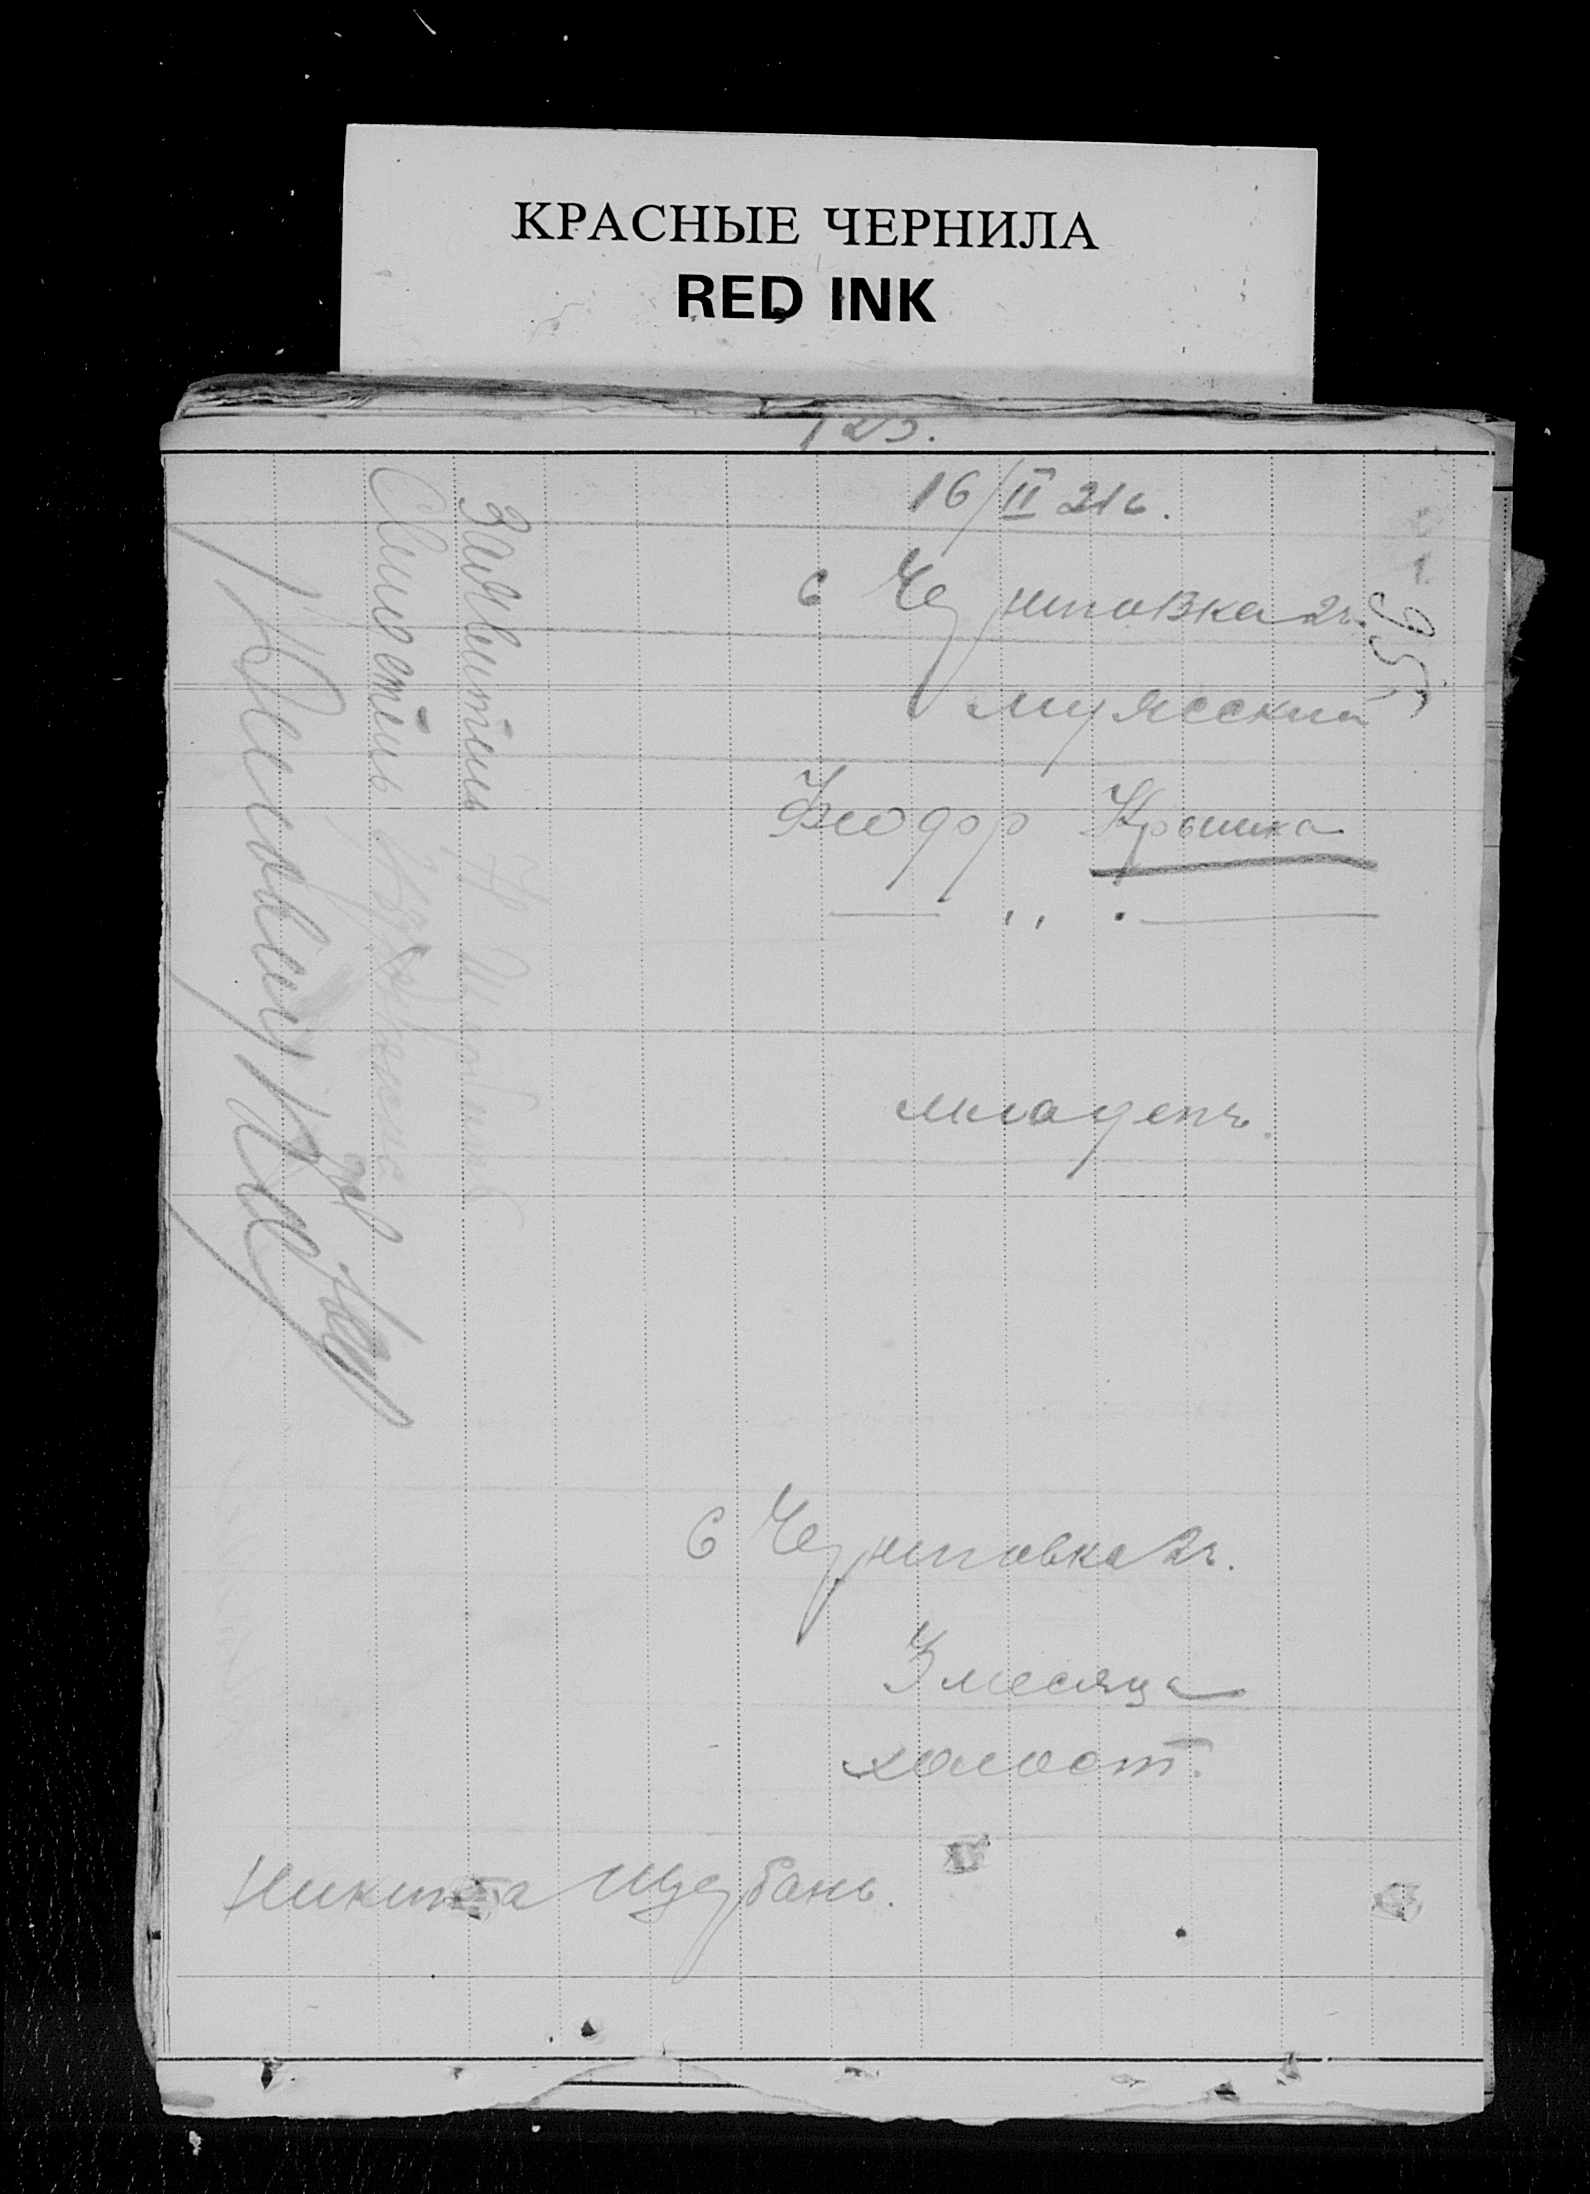 КРАСНЫЕ ЧЕРНИЛА
RED INK
123.
16/II 21 г.
95
с Черниговка 2 ч.
мужеский
Феодор Крышка
— ,, . —
младенч.
с Черниговка 2 ч.
3 месяца
холост.
Никита Щербань.
Заявитель Н Щербань
Свидетель